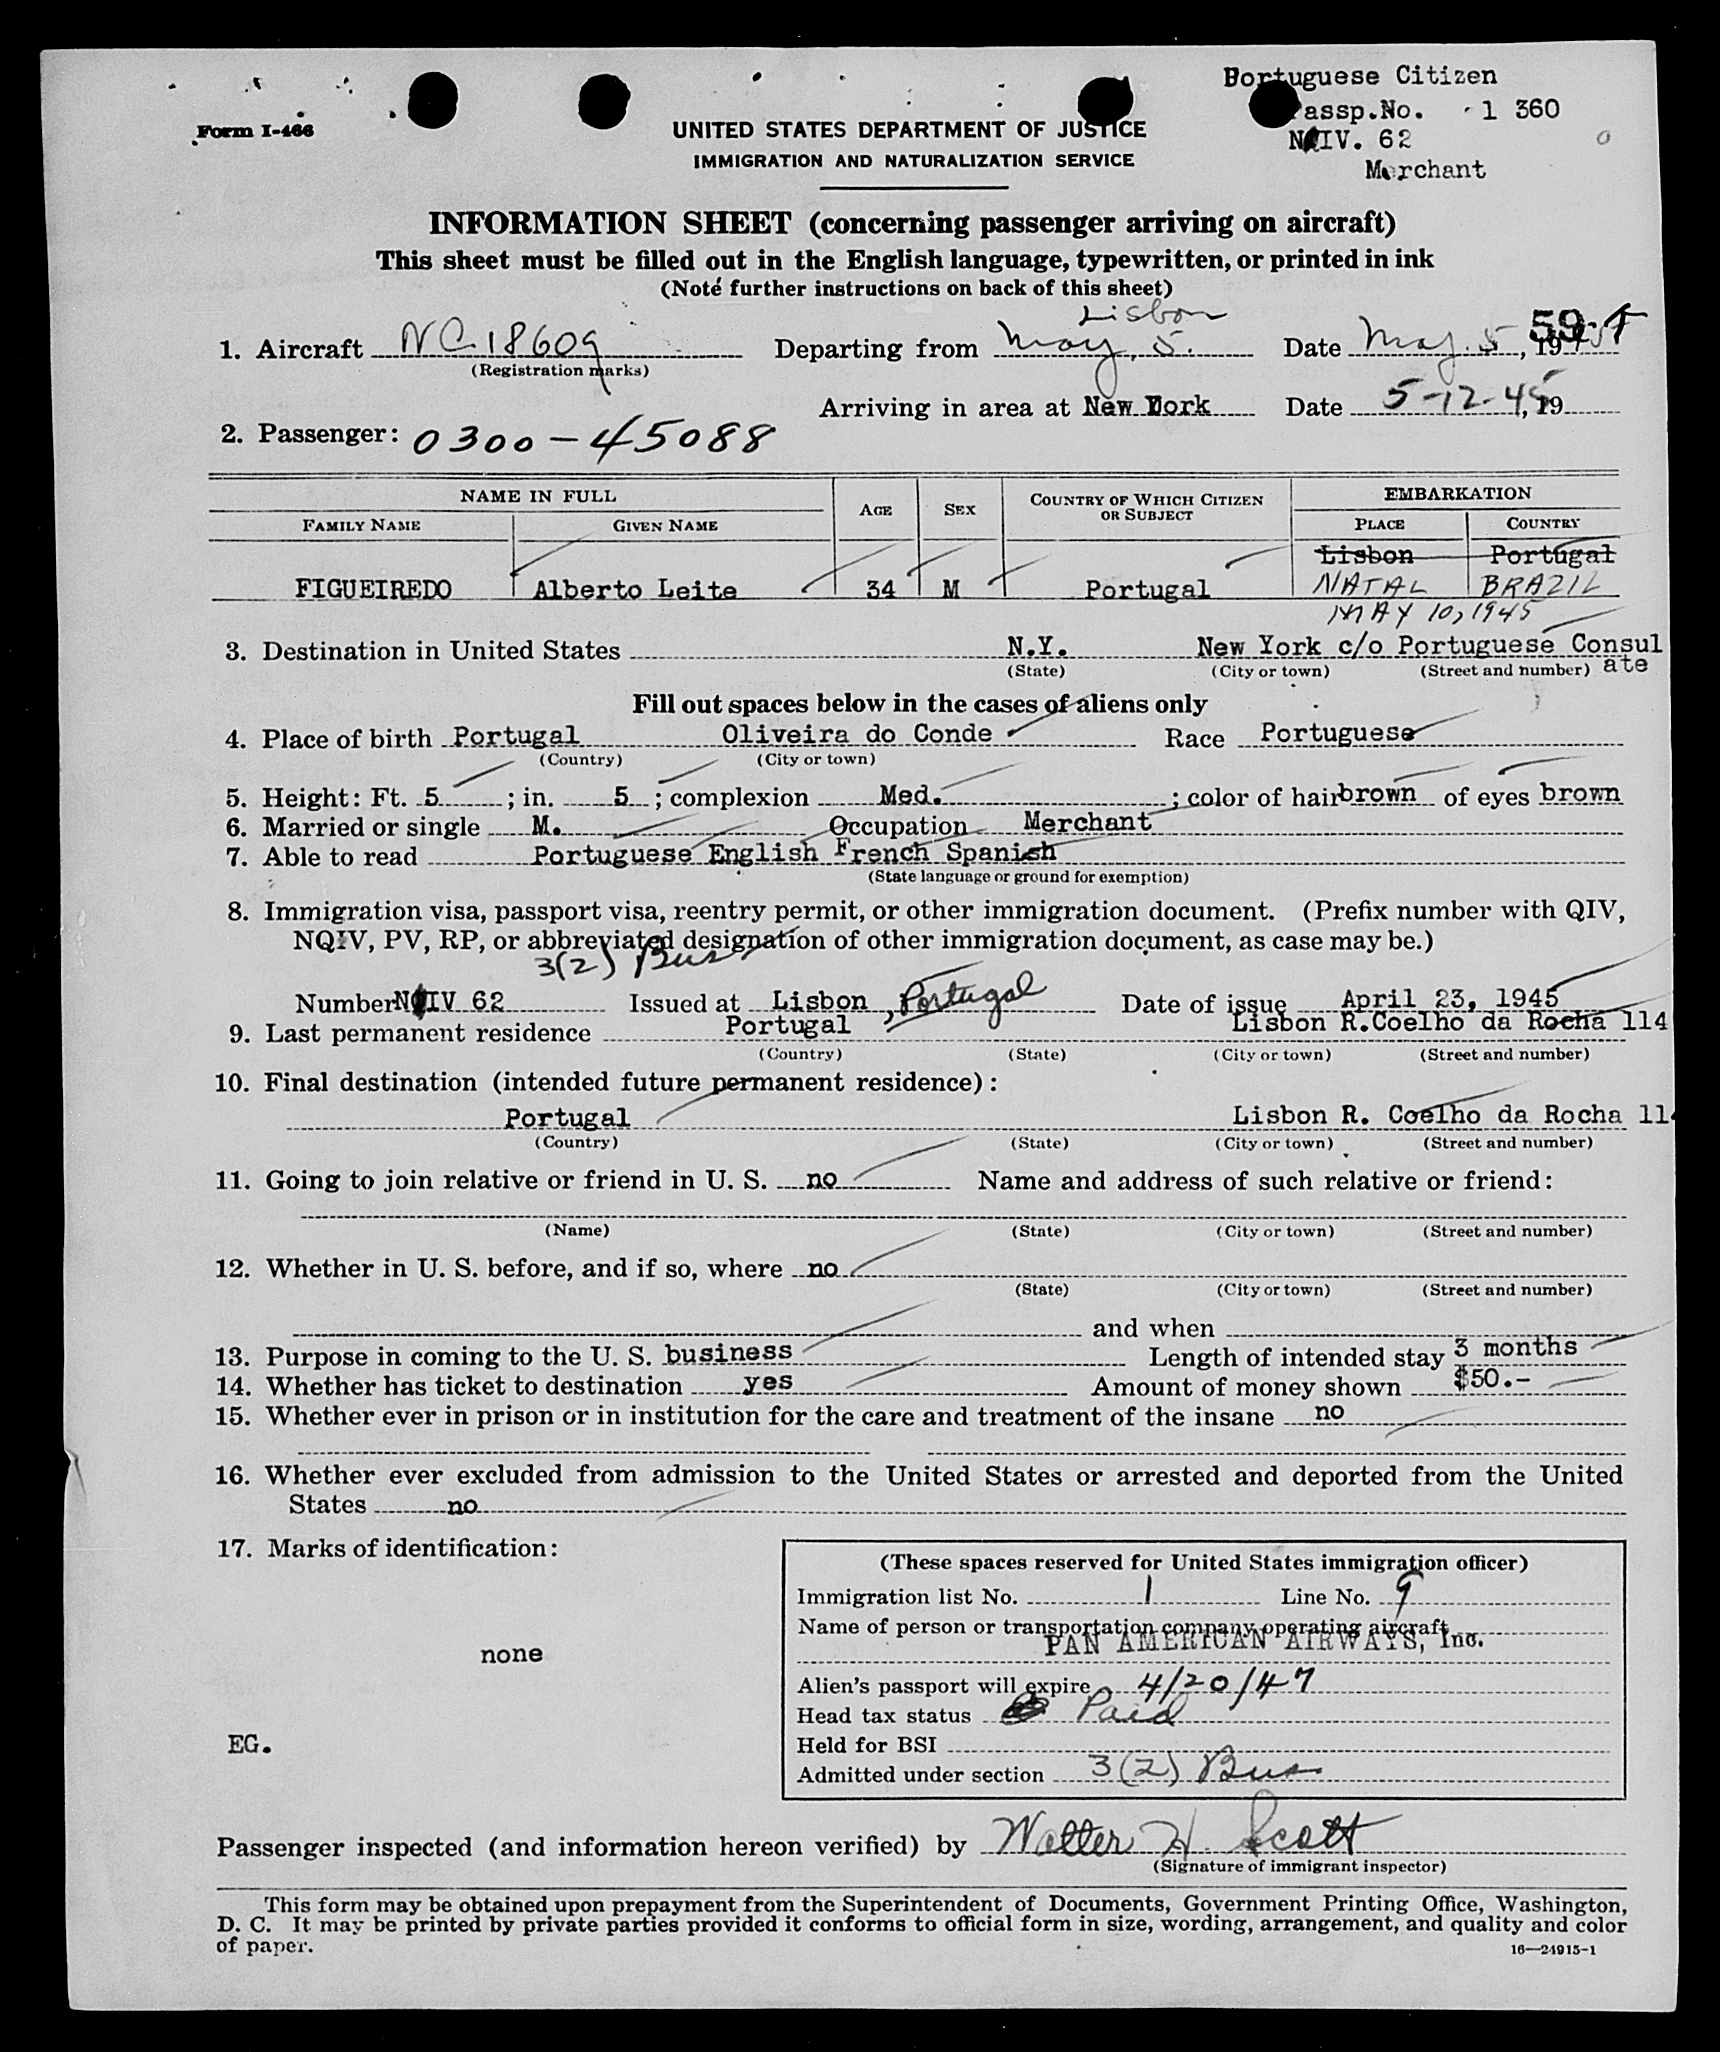 Portuguese Citizen
Passp.No. 1 360
Form I-466
UNITED STATES DEPARTMENT OF JUSTICE
IV. 62
IMMIGRATION AND NATURALIZATION SERVICE
Merchant
INFORMATION SHEET (concerning passenger arriving on aircraft)
This sheet must be filled out in the English language, typewritten, or printed in ink
(Note further instructions on back of this sheet)
Lisbon
1. Aircraft NC 18609 Departing from May, 5. Date May 5, 19
(Registration marks)
Arriving in area at New York Date 5-12-45, 19
2. Passenger: 0300-45088
NAME IN FULL AGE SEX COUNTRY OF WHICH CITIZEN OR SUBJECT EMBARKATION
FAMILY NAME GIVEN NAME PLACE COUNTRY
Lisbon Portugal
FIGUEIREDO Alberto Leite 34 M Portugal NATAL BRAZIL
MAY 10, 1945
3. Destination in United States N.Y. New York c/o Portuguese Consul
(State) (City or town) (Street and number) ate
Fill out spaces below in the cases of aliens only
4. Place of birth Portugal Oliveira do Conde Race Portuguese
(Country) (City or town)
5. Height: Ft. 5 ; in. 5 ; complexion Med. ; color of hair brown of eyes brown
6. Married or single M. Occupation Merchant
7. Able to read Portuguese English French Spanish
(State language or ground for exemption)
8. Immigration visa, passport visa, reentry permit, or other immigration document. (Prefix number with QIV,
NQIV, PV, RP, or abbreviated designation of other immigration document, as case may be.)
3(2) Bus
Number IV 62 Issued at Lisbon, Portugal Date of issue April 23, 1945
9. Last permanent residence Portugal Lisbon R.Coelho da Rocha 114
(Country) (State) (City or town) (Street and number)
10. Final destination (intended future permanent residence):
Portugal Lisbon R. Coelho da Rocha 114
(Country) (State) (City or town) (Street and number)
11. Going to join relative or friend in U. S. no Name and address of such relative or friend:
(Name) (State) (City or town) (Street and number)
12. Whether in U. S. before, and if so, where no
(State) (City or town) (Street and number)
and when
13. Purpose in coming to the U. S. business Length of intended stay 3 months
14. Whether has ticket to destination yes Amount of money shown $50.-
15. Whether ever in prison or in institution for the care and treatment of the insane no
16. Whether ever excluded from admission to the United States or arrested and deported from the United
States no
17. Marks of identification:
none
EG.
(These spaces reserved for United States immigration officer)
Immigration list No. 1 Line No. 9
Name of person or transportation company operating aircraft
PAN AMERICAN AIRWAYS, Inc.
Alien's passport will expire 4/20/47
Head tax status Paid
Held for BSI
Admitted under section 3(2) Bus
Passenger inspected (and information hereon verified) by Walter H. Scott
(Signature of immigrant inspector)
This form may be obtained upon prepayment from the Superintendent of Documents, Government Printing Office, Washington,
D. C. It may be printed by private parties provided it conforms to official form in size, wording, arrangement, and quality and color
of paper.
16—24915-1